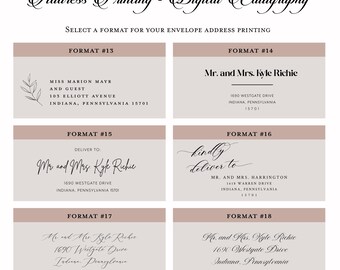 Address Printing - Digital Calligraphy
SELECT A FORMAT FOR YOUR ENVELOPE ADDRESS PRINTING
FORMAT #13
MISS MARION MAYR
AND GUEST
105 ELLIOTT AVENUE
INDIANA, PENNSYLVANIA
15701
FORMAT #14
Mr. and Mrs. Kyle Richie
1690 WESTGATE DRIVE
INDIANA, PENNSYLVANIA
15701
FORMAT #15
DELIVER TO:
Mr and Mrs Kyle Richie
1690 WESTGATE DRIVE
INDIANA, PENNSYLVANIA 15701
FORMAT #16
kindly
deliver to
MR. AND MRS. HARRINGTON
1419 WARREN DRIVE
INDIANA, PENNSYLVANIA
15701
FORMAT #17
Mr. and Mrs. Kyle Richie
1690 Westgate Drive
Indiana, Pennsylvania
FORMAT #18
Mr. and Mrs. Kyle Richie
1690 Westgate Drive
Indiana, Pennsylvania